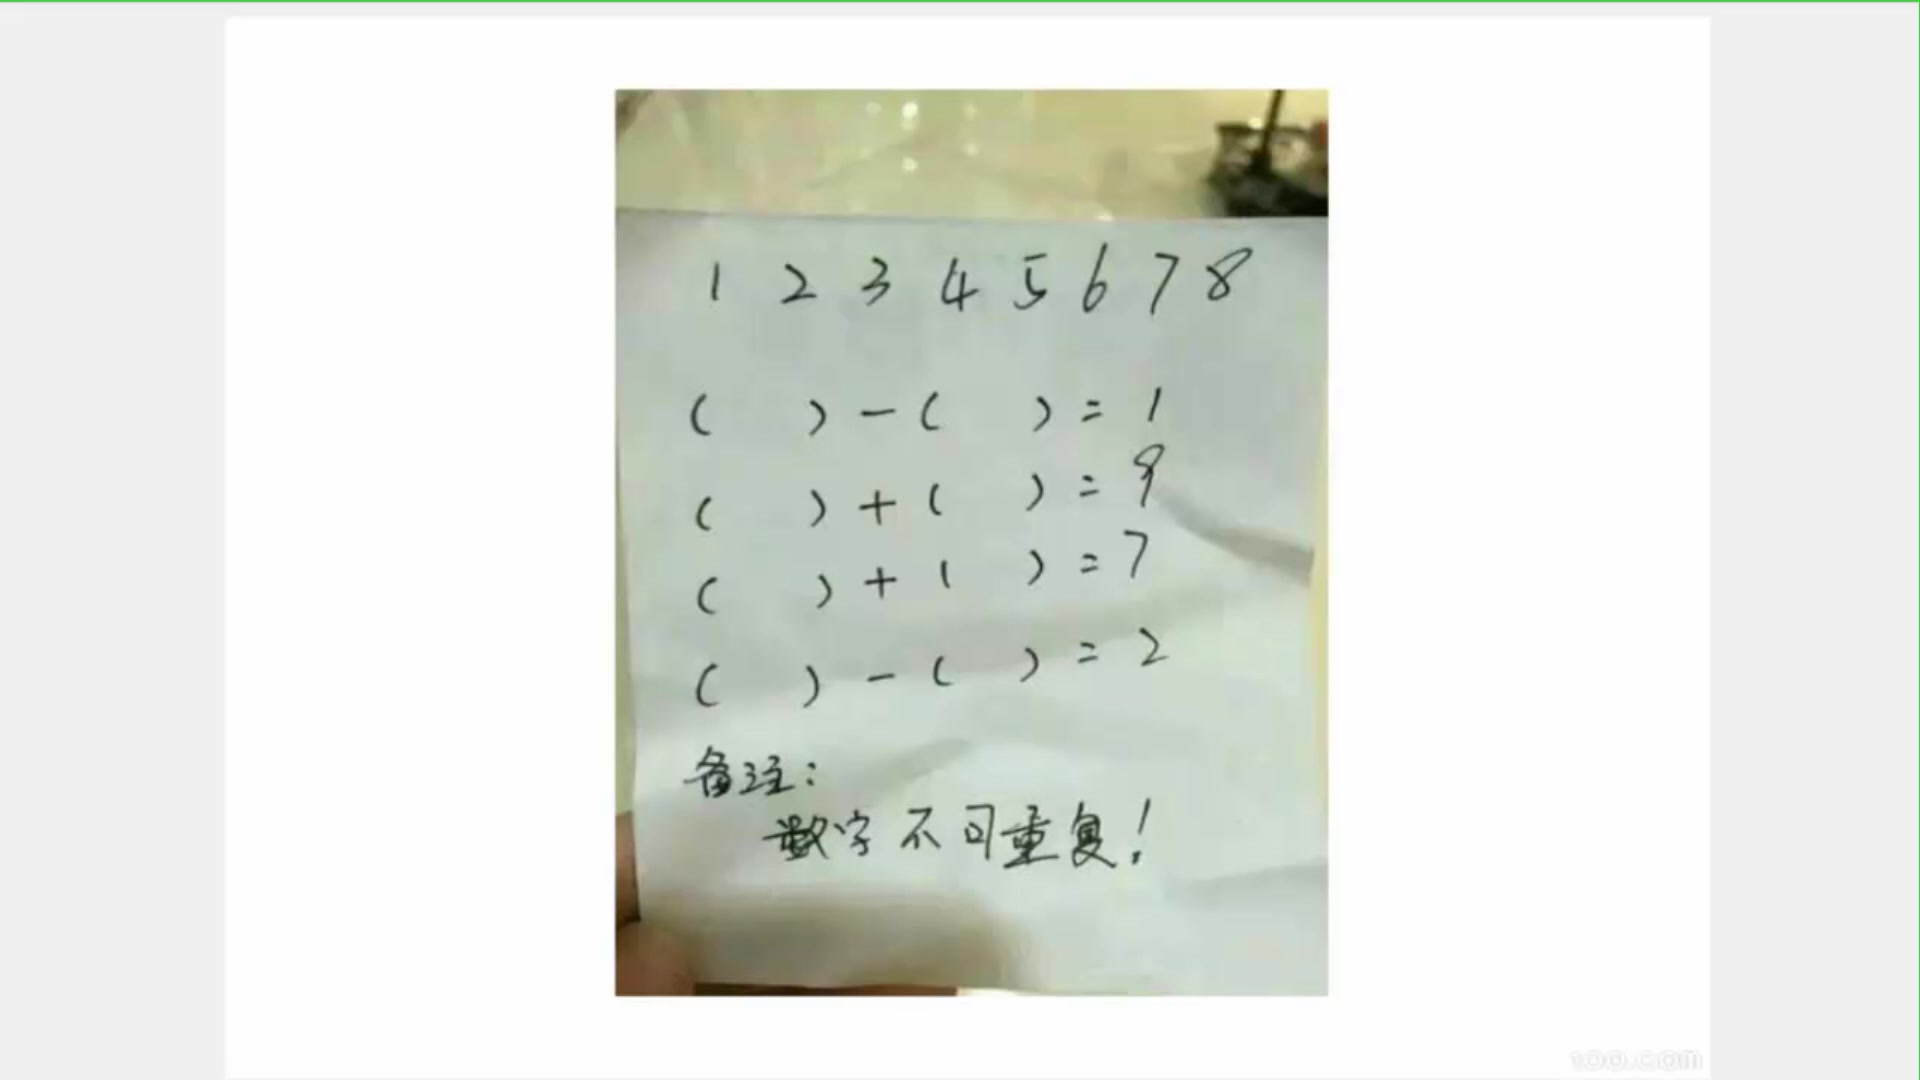 1 2 3 4 5 6 7 8
( ) - ( ) = 1
( ) + ( ) = 9
( ) + ( ) = 7
( ) - ( ) = 2
备注:
数字不可重复!
100.com